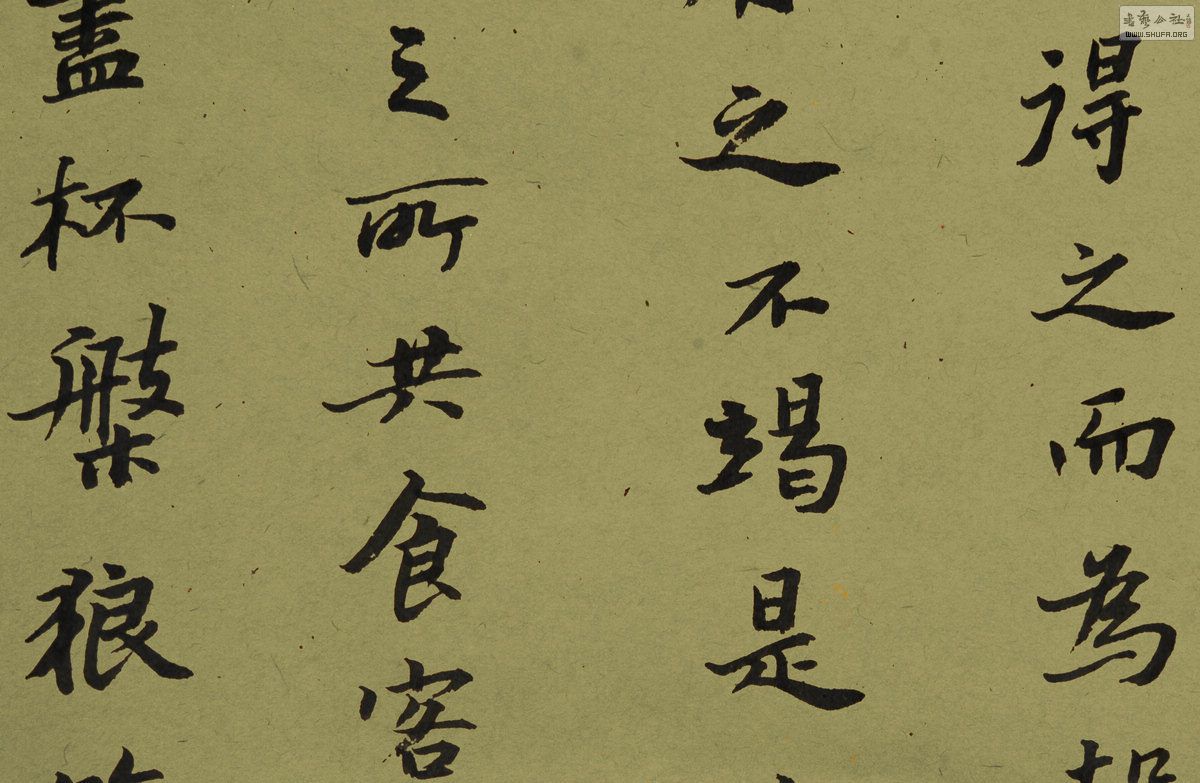 得之而為
之不竭是
之所共食客
盡杯槃狼
書藝公社
WWW.SHUFA.ORG